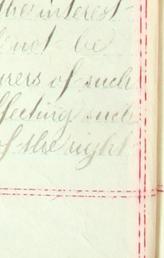 the interest-
not be
urers of such
ffecting such
of the right